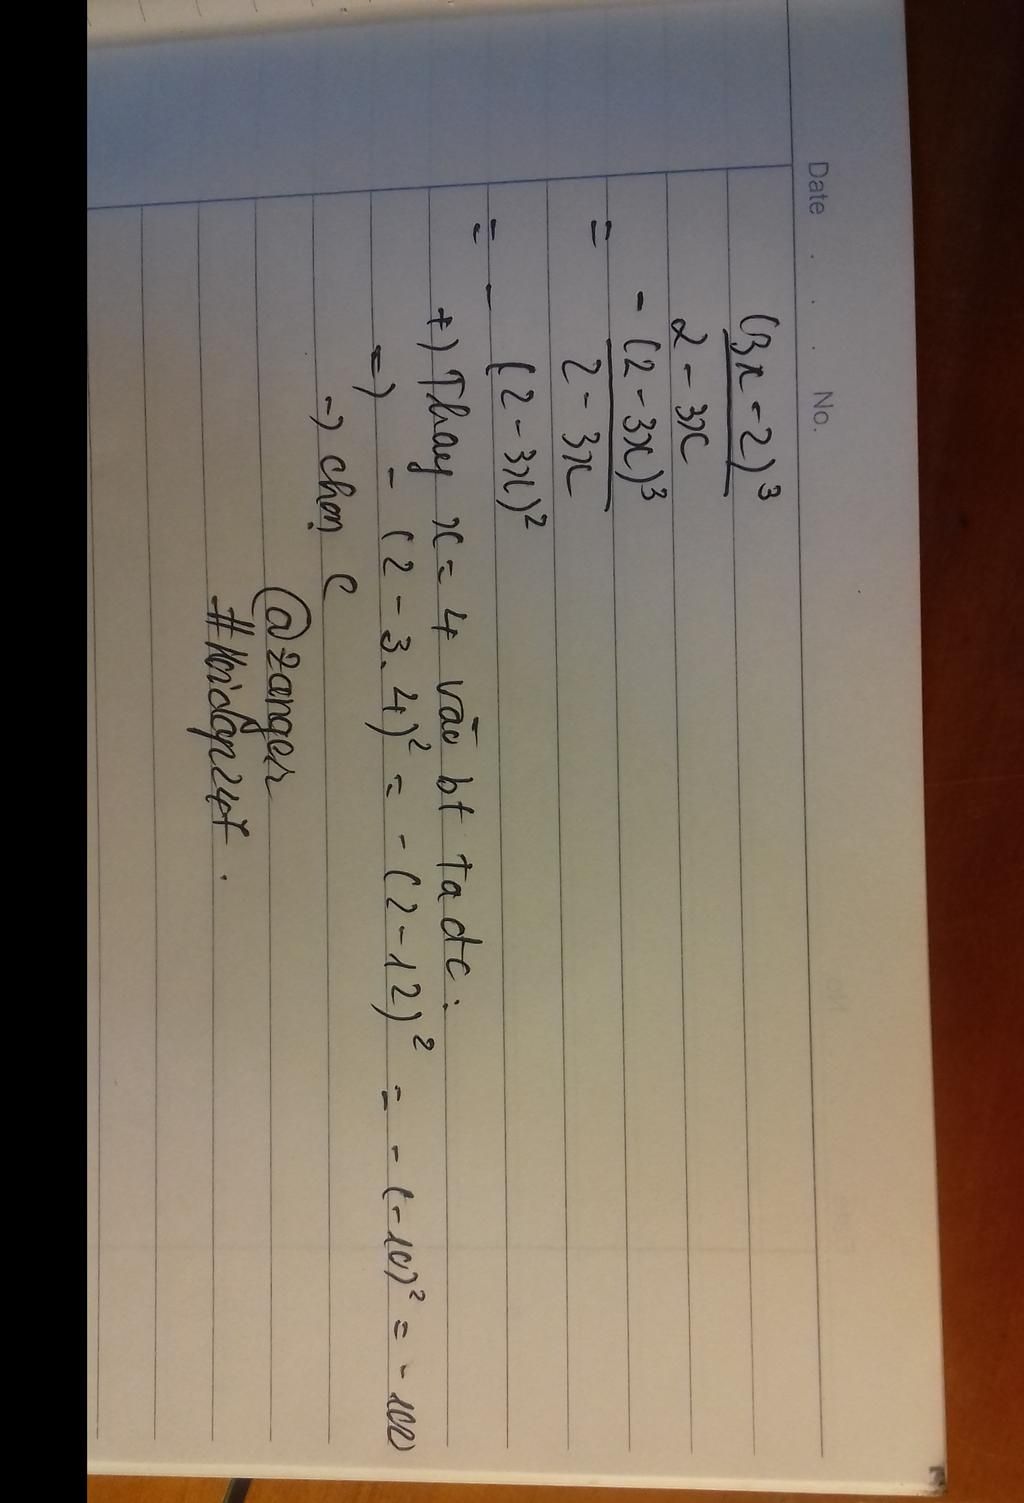 Date . . . No.
(3x - 2)³
2 - 3x
= -(2 - 3x)³
2 - 3x
= - (2 - 3x)²
+) Thay x = 4 vào bt ta dc :
=) - (2 - 3.4)² = - (2 - 12)² = - (-10)² = - 100
=) chọn C
@zanger
#Hoidap247.